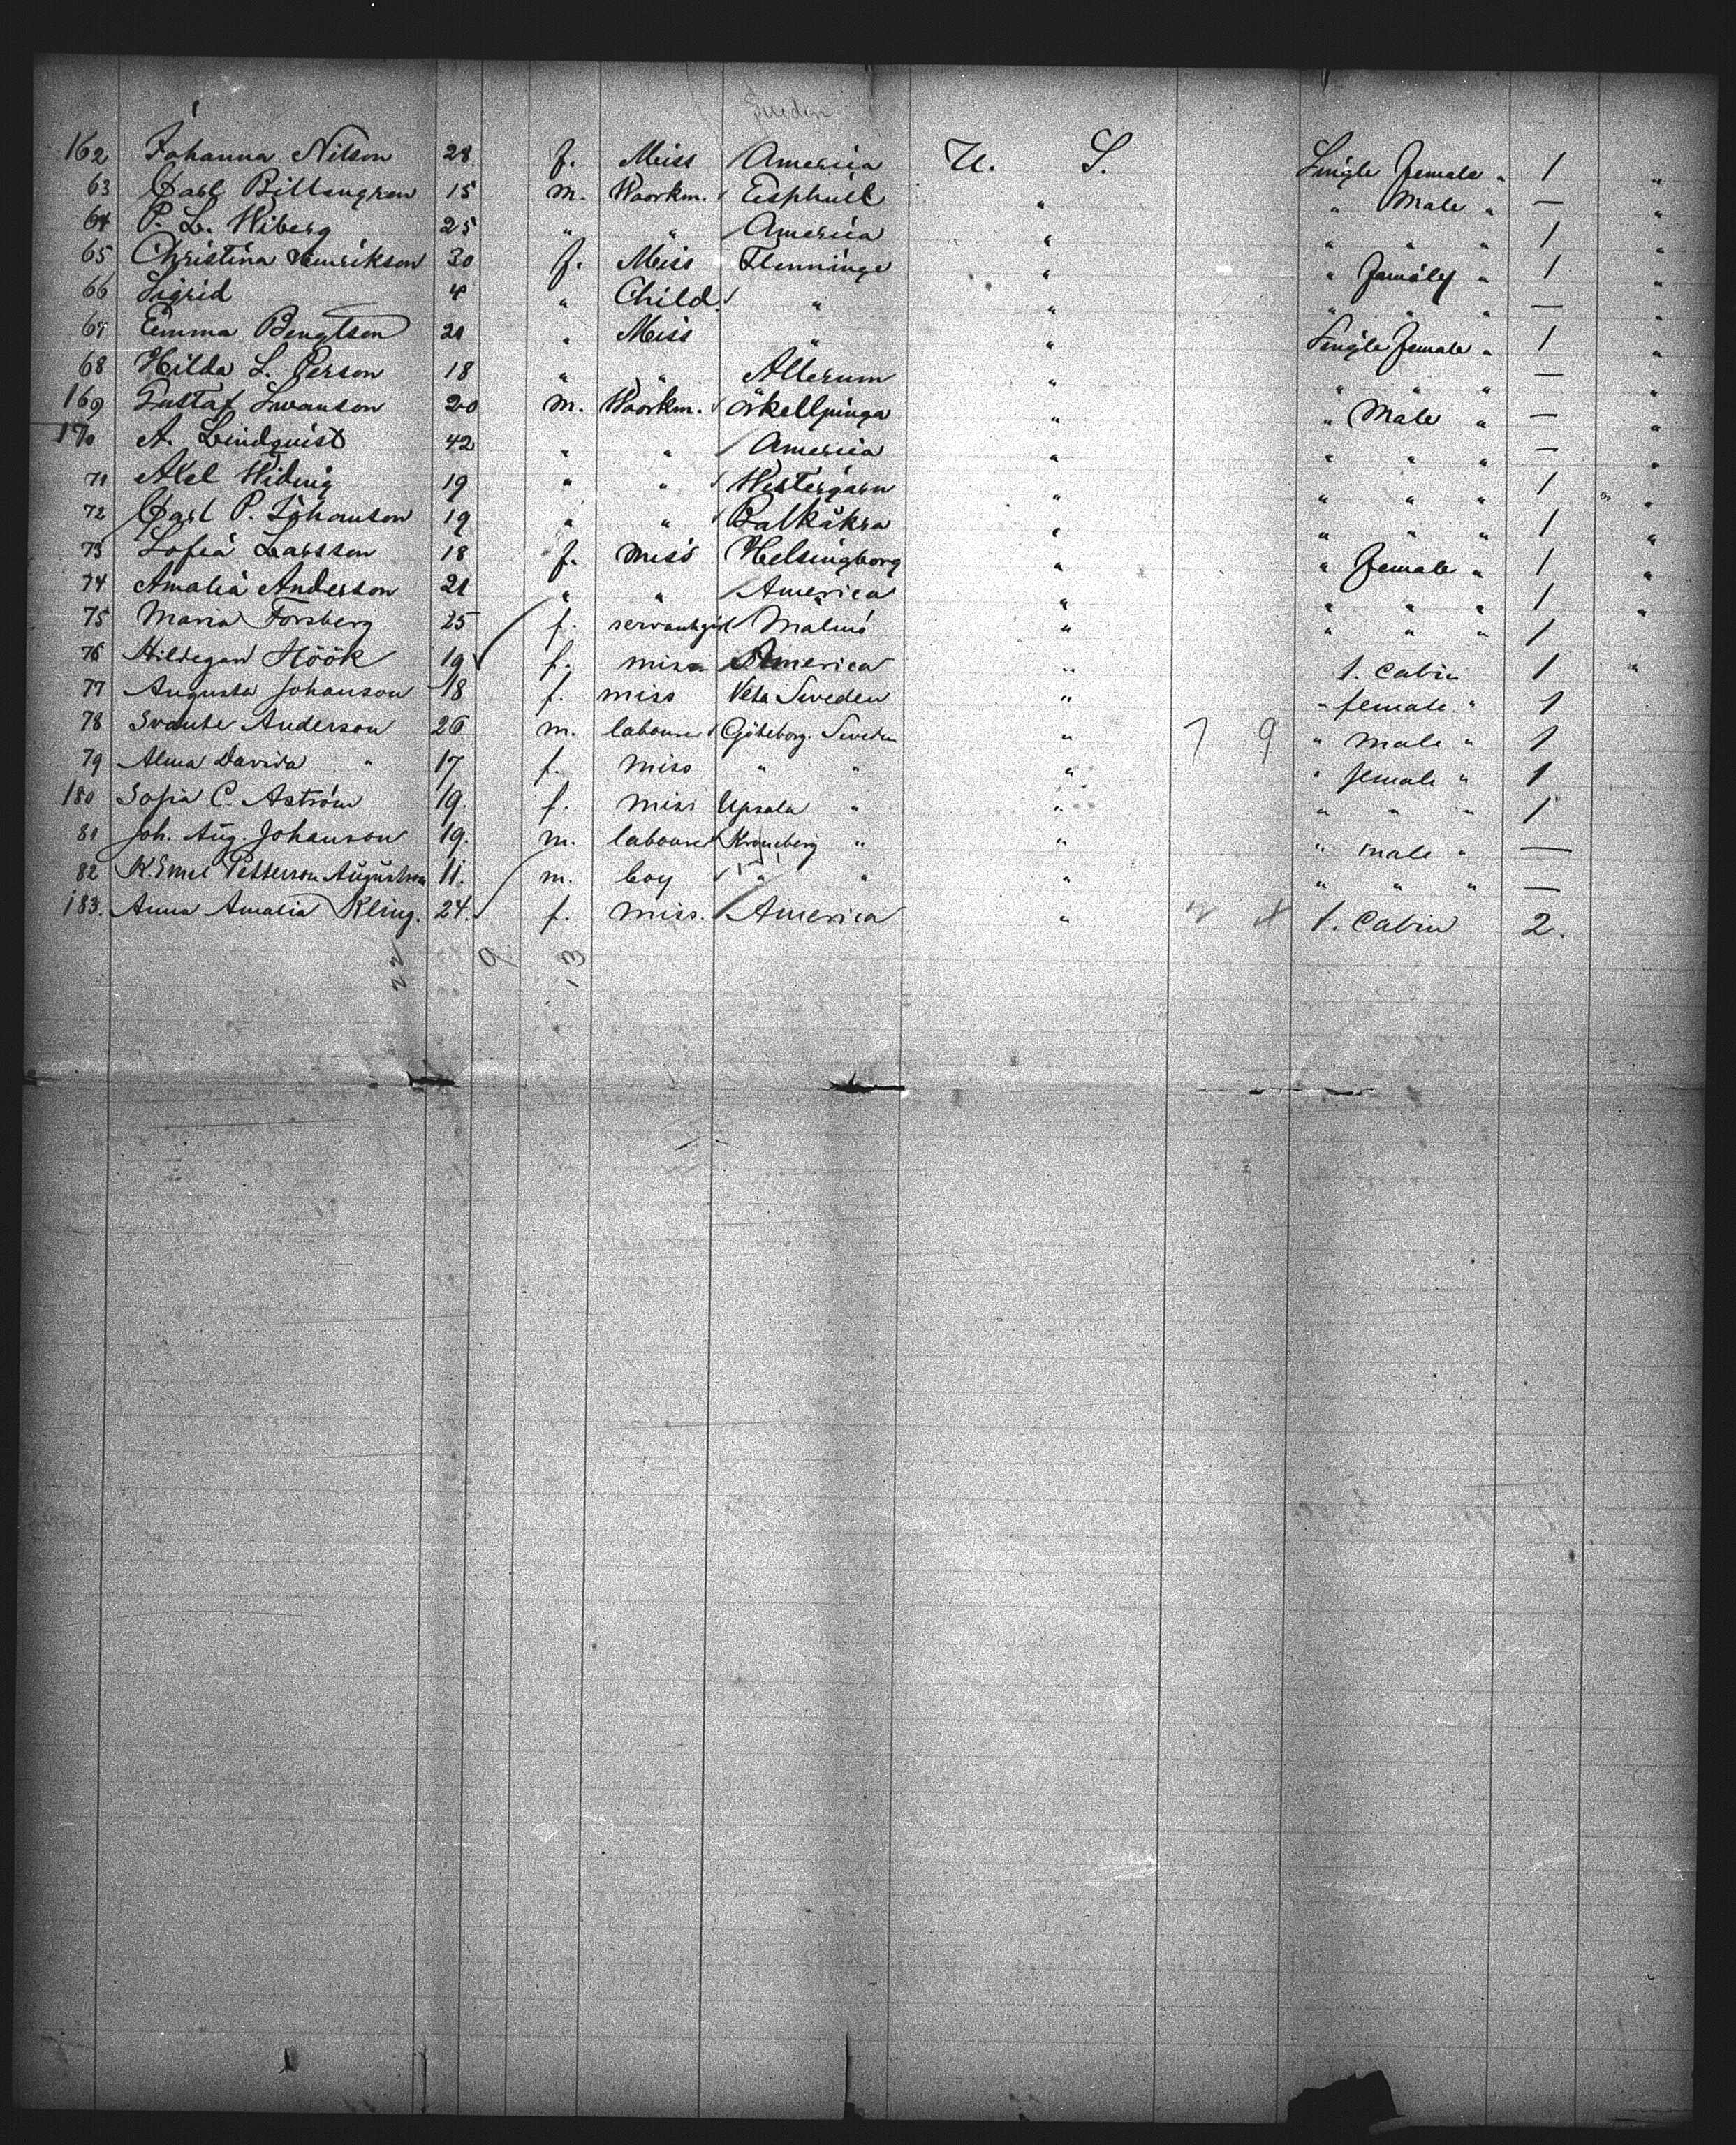 Sweden
162 Johanna Nilson 28 f. Miss America U. S. Single female " 1 "
63 Carl Billengren 15 m. Woorkm. Eesphult " " Male " — "
64 P. L. Wiberg 25 " " America " " " " 1 "
65 Christina Henrikson 30 f. Miss Flenninge " " famely " 1 "
66 Sigrid 4 " Child. " " " " " — "
67 Emma Bengtson 21 " Miss " " Single female " 1 "
68 Hilda L. Person 18 " " Allerum " " " " — "
169 Gustaf Swanson 20 m. Woorkm. örkelljunga " " Male " — "
170 A. Lindquist 42 " " America " " " " — "
71 Axel Widing 19 " " Westergarn " " " " 1 "
72 Carl P. Johanson 19 " " Balkåkra " " " " 1 "
73 Sofia Larsson 18 f. Miss Helsingborg " " female " 1 "
74 Amalia Anderson 21 " " America " " " " 1 "
75 Maria Forsberg 25 f. servantgirl Malmö " " " " 1
76 Hildegan Höök 19 f. miss America " 1. Cabin 1 "
77 Augusta Johanson 18 f. miss Sweden " " female " 1
78 Svante Anderson 26 m. labourer Göteborg. Sweden " 7 9 " male " 1
79 Alma Davida " 17 f. miss " " " " female " 1
180 Sofia C. Aström 19. f. miss Upsala " " " " " 1
81 Joh. Aug. Johanson 19. m. labourer Kroneberg " " " male " —
82 K. Emil Petterson Augustson 11. m. boy " " " " " " —
183. Anna Amalia Kling. 24. f. miss. America " 1. Cabin 2.
22 9 13